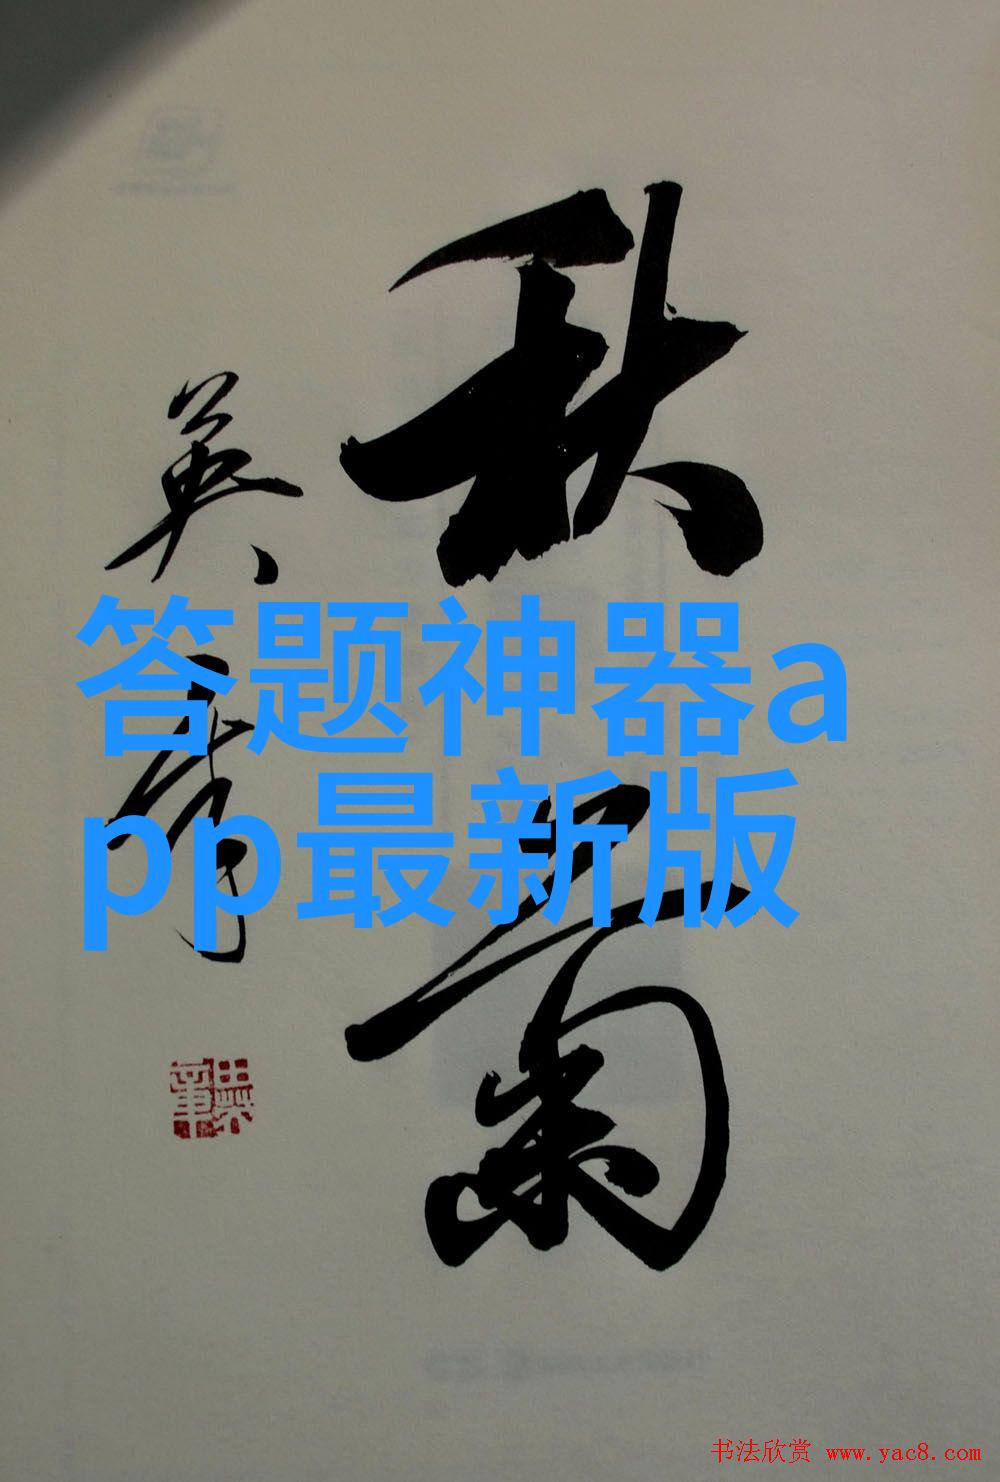 秋菊
英章
答题神器a
pp最新版
书法欣赏 www.yac8.com